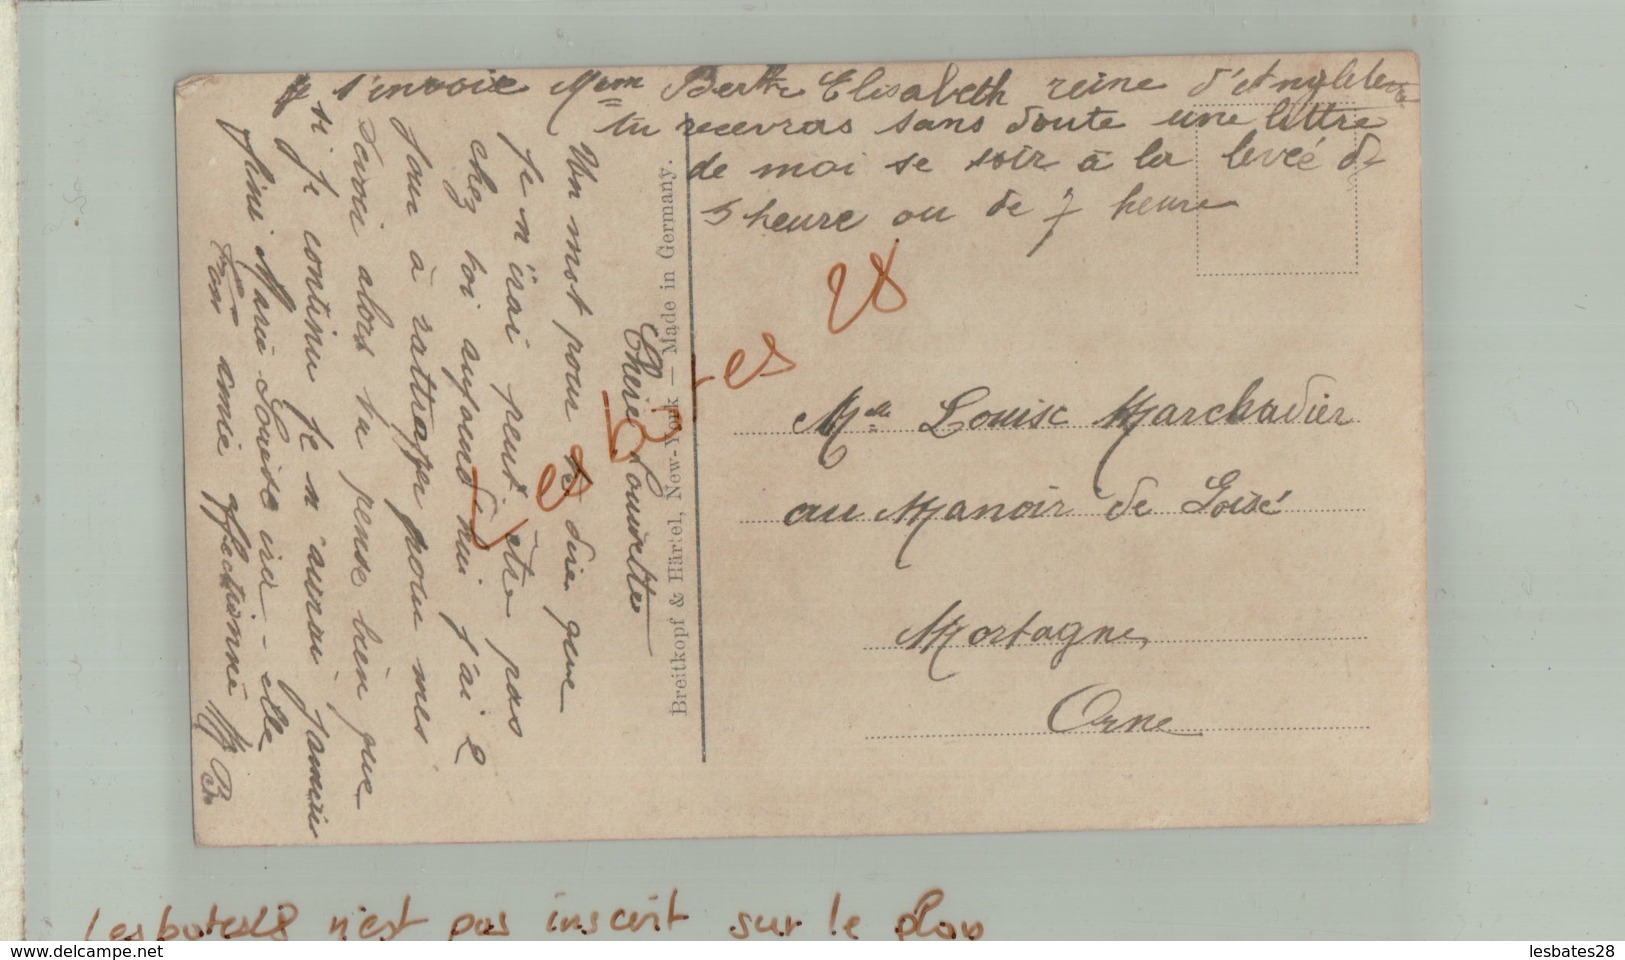 Je t'envoie Mem Berthe Elisabeth reine d'Angleterre
tu recevras sans doute une lettre
de moi se soir à la leveé de
5 heure ou de 7 heure
Cherie Louisette
Un mot pour te dire que
je n'irai peut être pas
chez toi aujourd'hui j'ai 2
jour à rattraper pour mes
devoir alors tu pense bien que
si je continu je n'aurai jamais
fini Marie Louise ira-elle
Ton amie affectionné
Breitkopf & Härtel, New-York — Made in Germany.
Mlle Louise Marchadier
au Manoir de Loisé
Mortagne
Orne
Lesbates28
Lesbates28 n'est pas inscrit sur le plan
www.delcampe.net
lesbates28